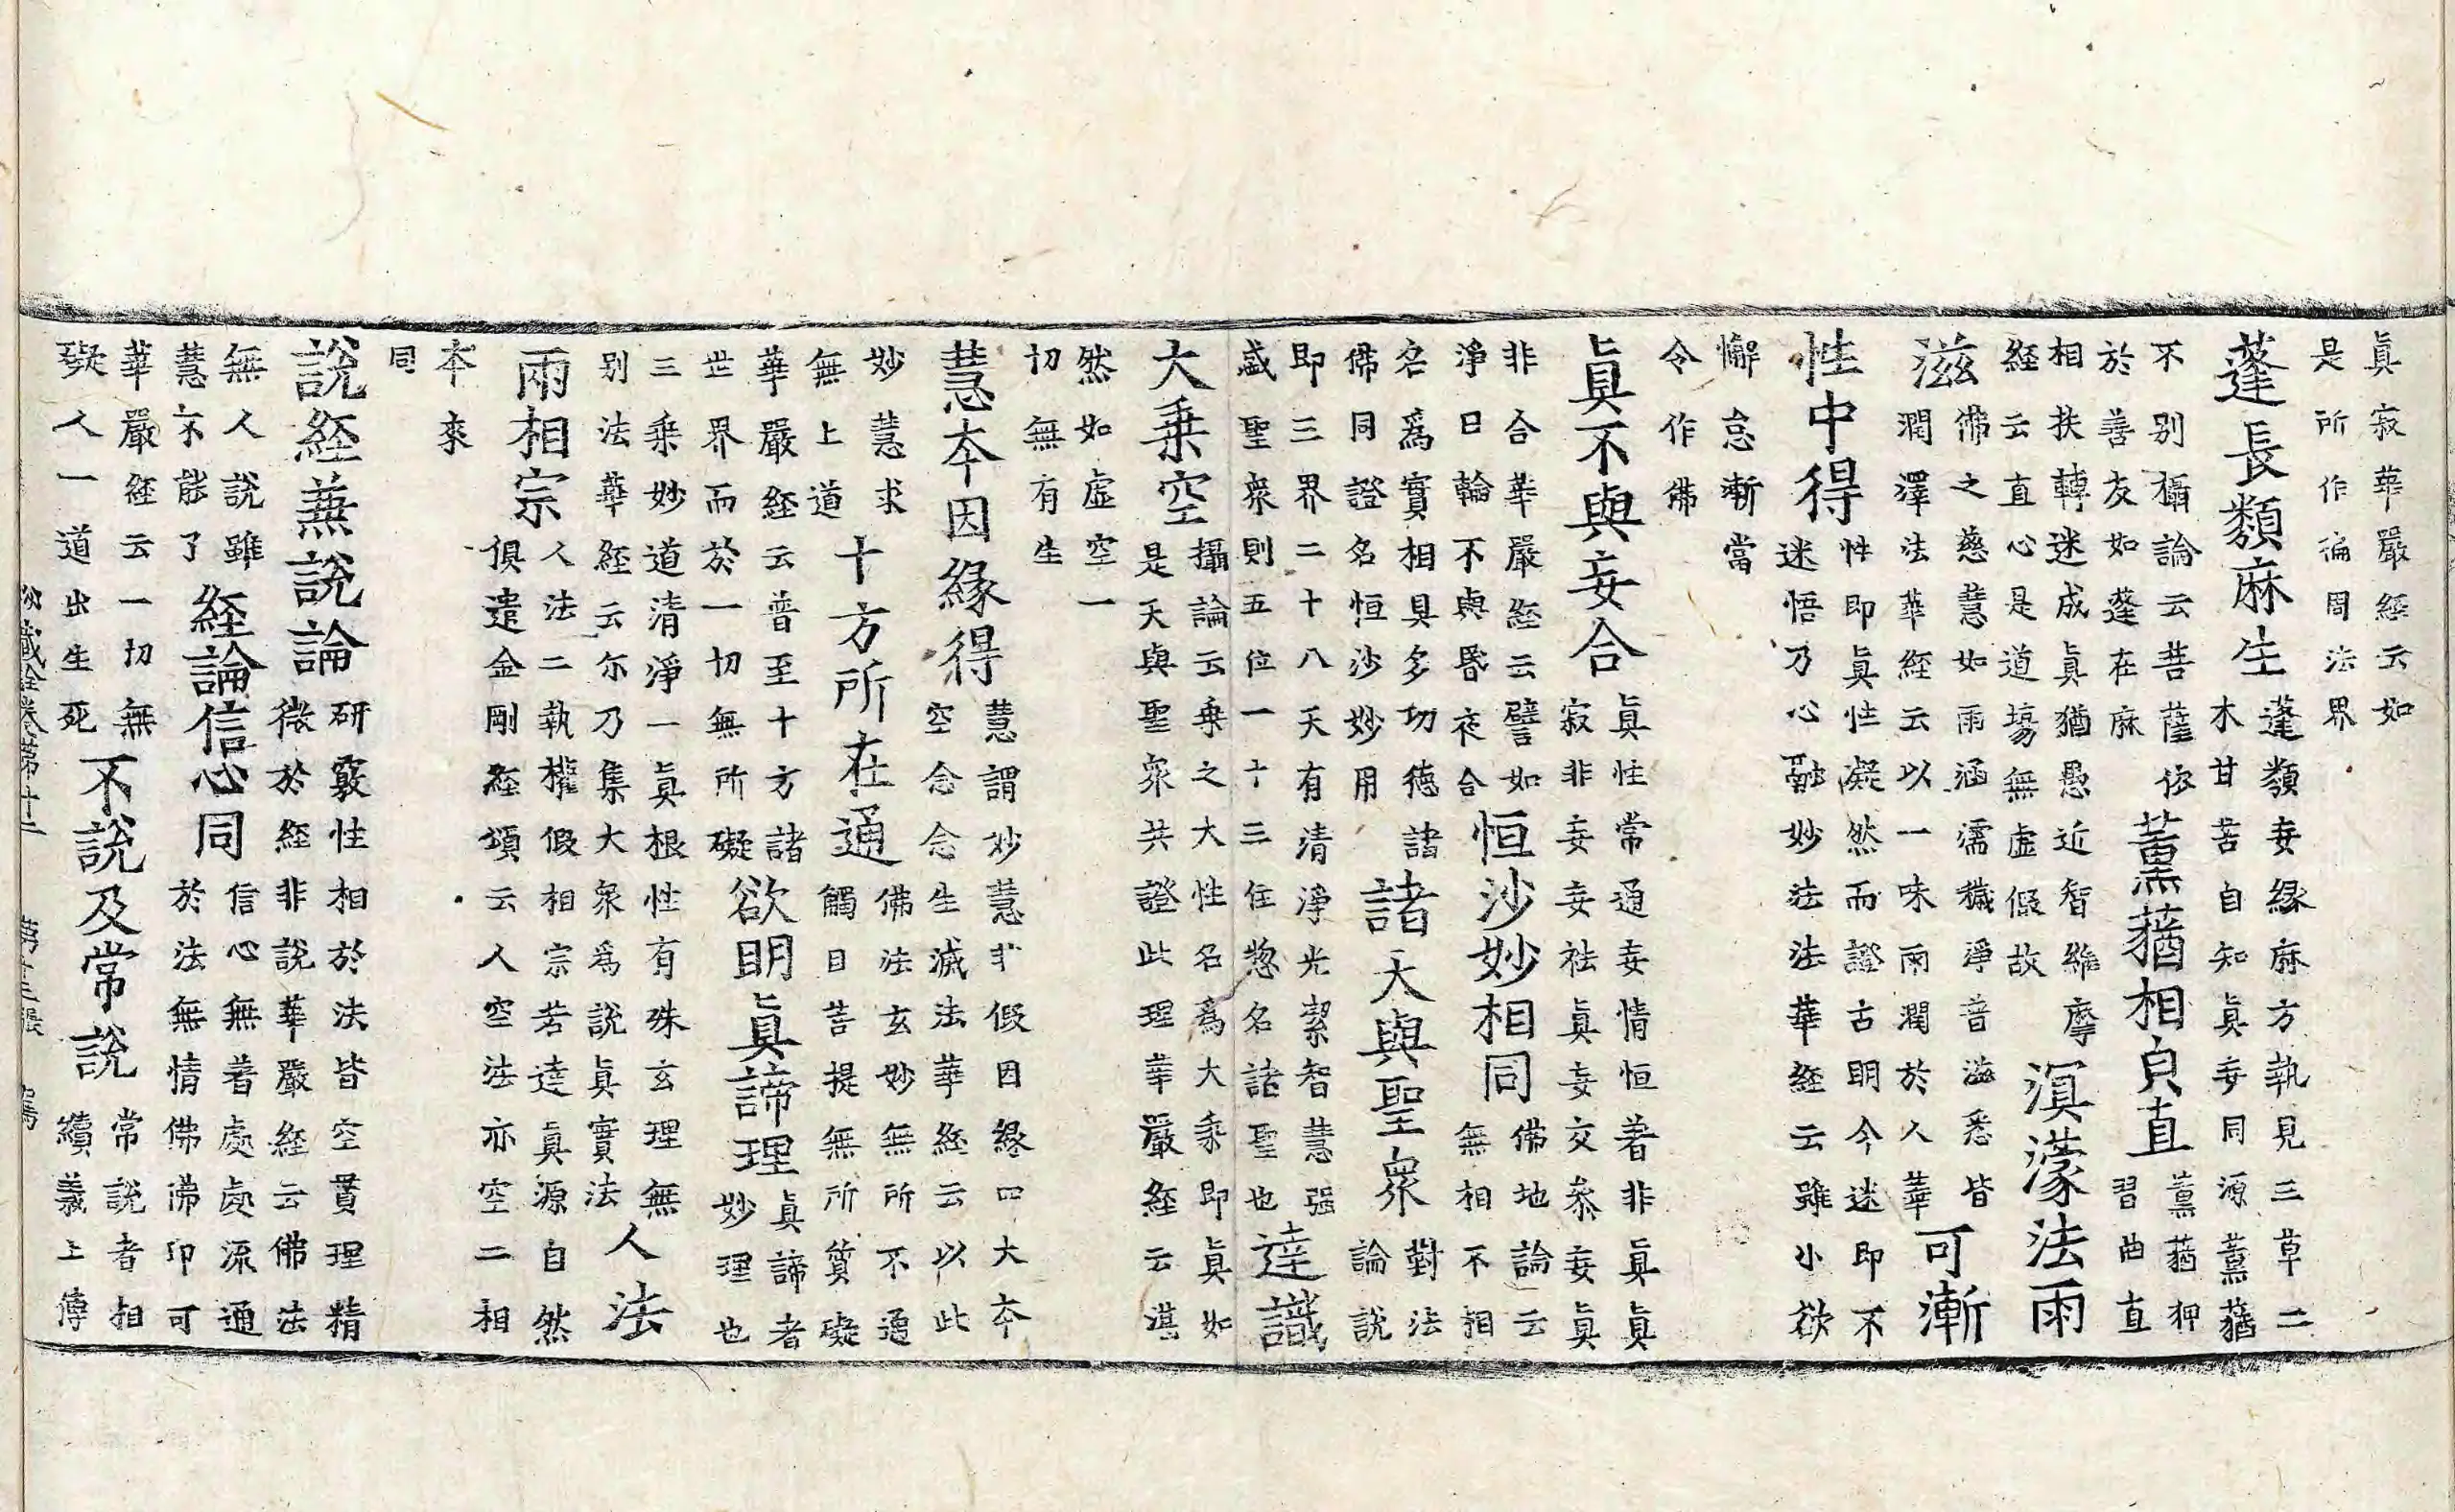 眞寂華嚴經云如
是所作徧周法界
蓬長纇麻生
蓬纇妄緣麻方執見三草二
木甘苦自知眞妄同源薰蕕
不別攝論云菩薩依
於善友如蓬在麻
薰蕕相貞直
薰蕕狎
習曲直
相扶轉迷成眞猶愚近智維摩
經云直心是道場無虛假故
溟濛法雨
滋
佛之慈慧如雨涵濡穢淨音滋悉皆
潤澤法華經云以一味雨潤於人華
可漸
性中得
性即眞性凝然而證古明今迷即不
迷悟乃心融妙法法華經云雖小欲
懈怠漸當
令作佛
眞不與妄合
眞性常通妄情恒著非眞眞
寂非妄妄祛眞妄交叅妄眞
非合華嚴經云譬如
淨日輪不與昏夜合
恒沙妙相同
佛地論云
無相不相
名爲實相具多功德諸
佛同證名恒沙妙用
諸天與聖衆
對法
論說
即三界二十八天有清淨光潔智慧强
盛聖衆則五位一十三住惣名諸聖也
達識
大乗空
攝論云乗之大性名爲大乗即眞如
是天與聖衆共證此理華嚴經云湛
然如虛空一
切無有生
慧夲因緣得
慧謂妙慧非假因緣四大夲
空念念生滅法華經云以此
妙慧求
無上道
十方所在通
佛法玄妙無所不通
觸目菩提無所質礙
華嚴經云普至十方諸
世界而於一切無所礙
欲明眞諦理
眞諦者
妙理也
三乗妙道清淨一眞根性有殊玄理無
別法華經云尒乃集大衆爲說眞實法
人法
兩相宗
人法二執權假相宗若達眞源自然
俱遣金剛經頌云人空法亦空二相
夲來
同
說経兼說論
研覈性相於法皆空貫理精
微於經非說華嚴經云佛法
無人說雖
慧不能了
経論信心同
信心無著處處流通
於法無情佛佛印可
華嚴經云一切無
礙人一道出生死
不說及常說
常說者相
續義上傳
藏詮卷第十二